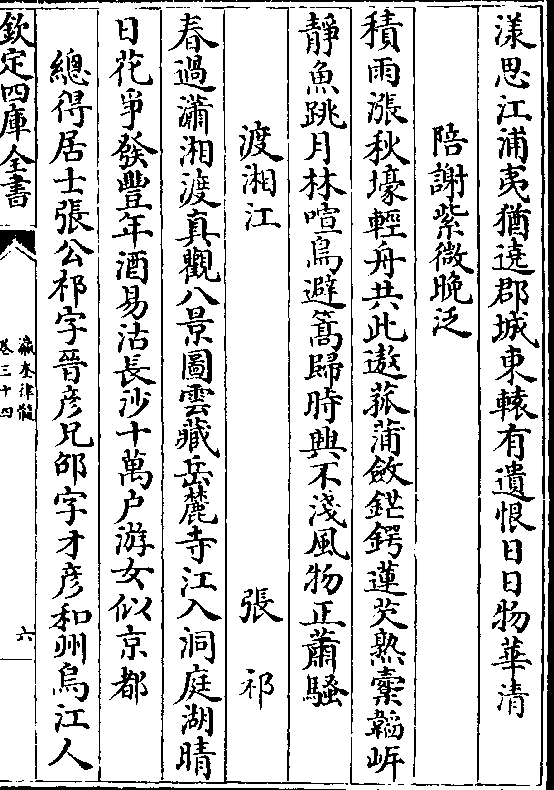 漾思江浦夷猶遶郡城東轅有遺恨日日物華清
陪謝紫微晚泛
積雨漲秋壕輕舟共此遨菰蒲斂鋩鍔蓮芡熟櫜韜岍
靜魚跳月林喧鳥避篙歸時興不淺風物正蕭騷
渡湘江 張祁
春過瀟湘渡真觀八景圖雲藏岳麓寺江入洞庭湖晴
日花爭發豐年酒易沽長沙十萬户游女似京都
總得居士張公祁字晉彥兄邵字才彥和州烏江人
欽定四庫全書
瀛奎律髓
卷三十四
六